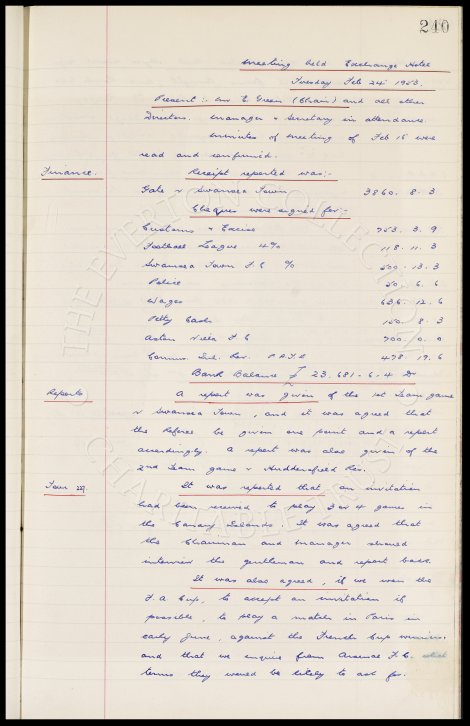 240
Meeting held Exchange Hotel
Tuesday Feb 24th 1953.
Present :- Mr E Green (Chair) and all other
Directors. Manager & Secretary in attendance.
Minutes of meeting of Feb 15 were
read and confirmed.
Finance. Receipt reported was:-
Gate v Swansea Town 3860. 8. 3
Cheques were signed for:-
Customs & Excise 753. 3. 9
Football League 4% 118. 11. 3
Swansea Town F.C % 500. 13. 3
Police 50. 6. 6
Wages 636. 12. 6
Petty Cash 150. 8. 3
Aston Villa F.C 700. 0. 0
Commr. Inl. Rev. P.A.Y.E 478. 19. 6
Bank Balance £ 23,681-6-4 Dr
Reports A report was given of the 1st Team game
v Swansea Town, and it was agreed that
the Referee be given one point and a report
accordingly. A report was also given of the
2nd Team game v Huddersfield Res.
Tour It was reported that an invitation
had been received to play 3 or 4 games in
the Canary Islands. It was agreed that
the Chairman and Manager should
interview the gentleman and report back.
It was also agreed, if we won the
F.A Cup, to accept an invitation if
possible, to play a match in Paris in
early June, against the French Cup winners.
and that we enquire from Arsenal F.C. what
terms they would be likely to ask for.
THE EVERTON COLLECTION
CHARITABLE TRUST